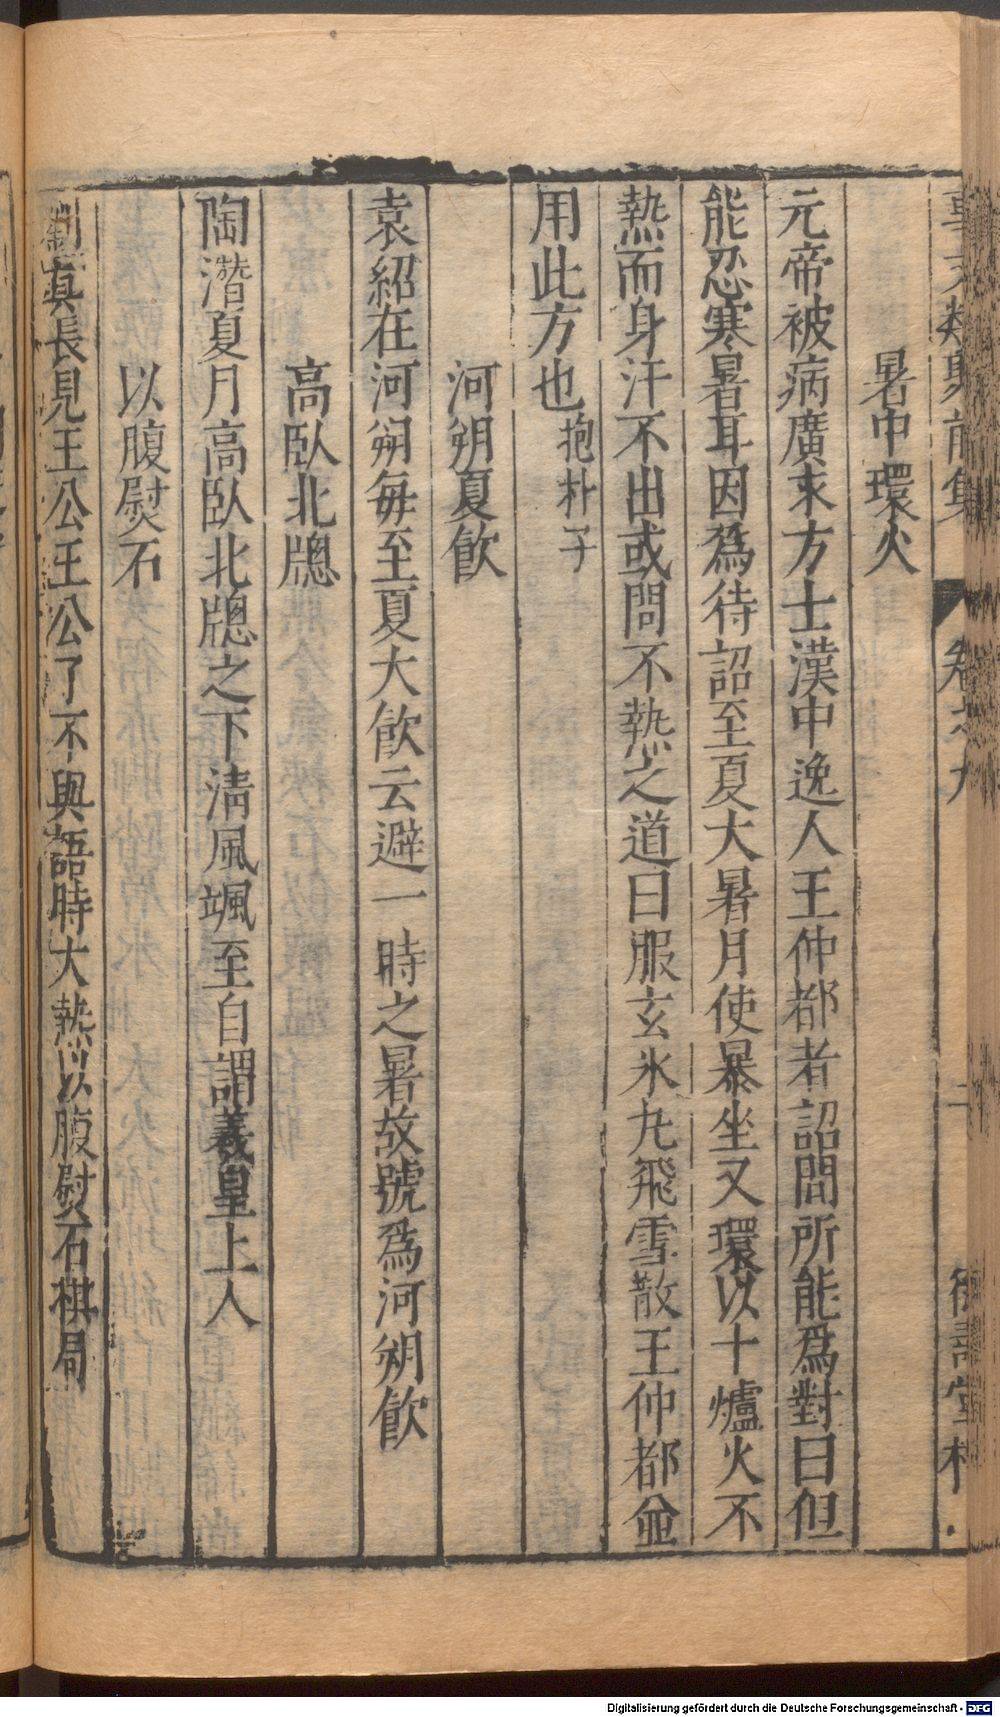 事文類聚前集 卷之九 二 德壽堂梓
暑中環火
元帝被病廣求方士漢中逸人王仲都者詔問所能為對曰但
能忍寒暑耳因為待詔至夏大暑月使暴坐又環以十爐火不
熱而身汗不出或問不熱之道曰服玄氷九飛雪散王仲都並
用此方也抱朴子
河朔夏飲
袁紹在河朔每至夏大飲云避一時之暑故號為河朔飲
高臥北牕
陶潛夏月高臥北牕之下清風颯至自謂羲皇上人
以腹熨石
劉真長見王公王公了不與語時大熱以腹熨石棋局
Digitalisierung gefördert durch die Deutsche Forschungsgemeinschaft - DFG